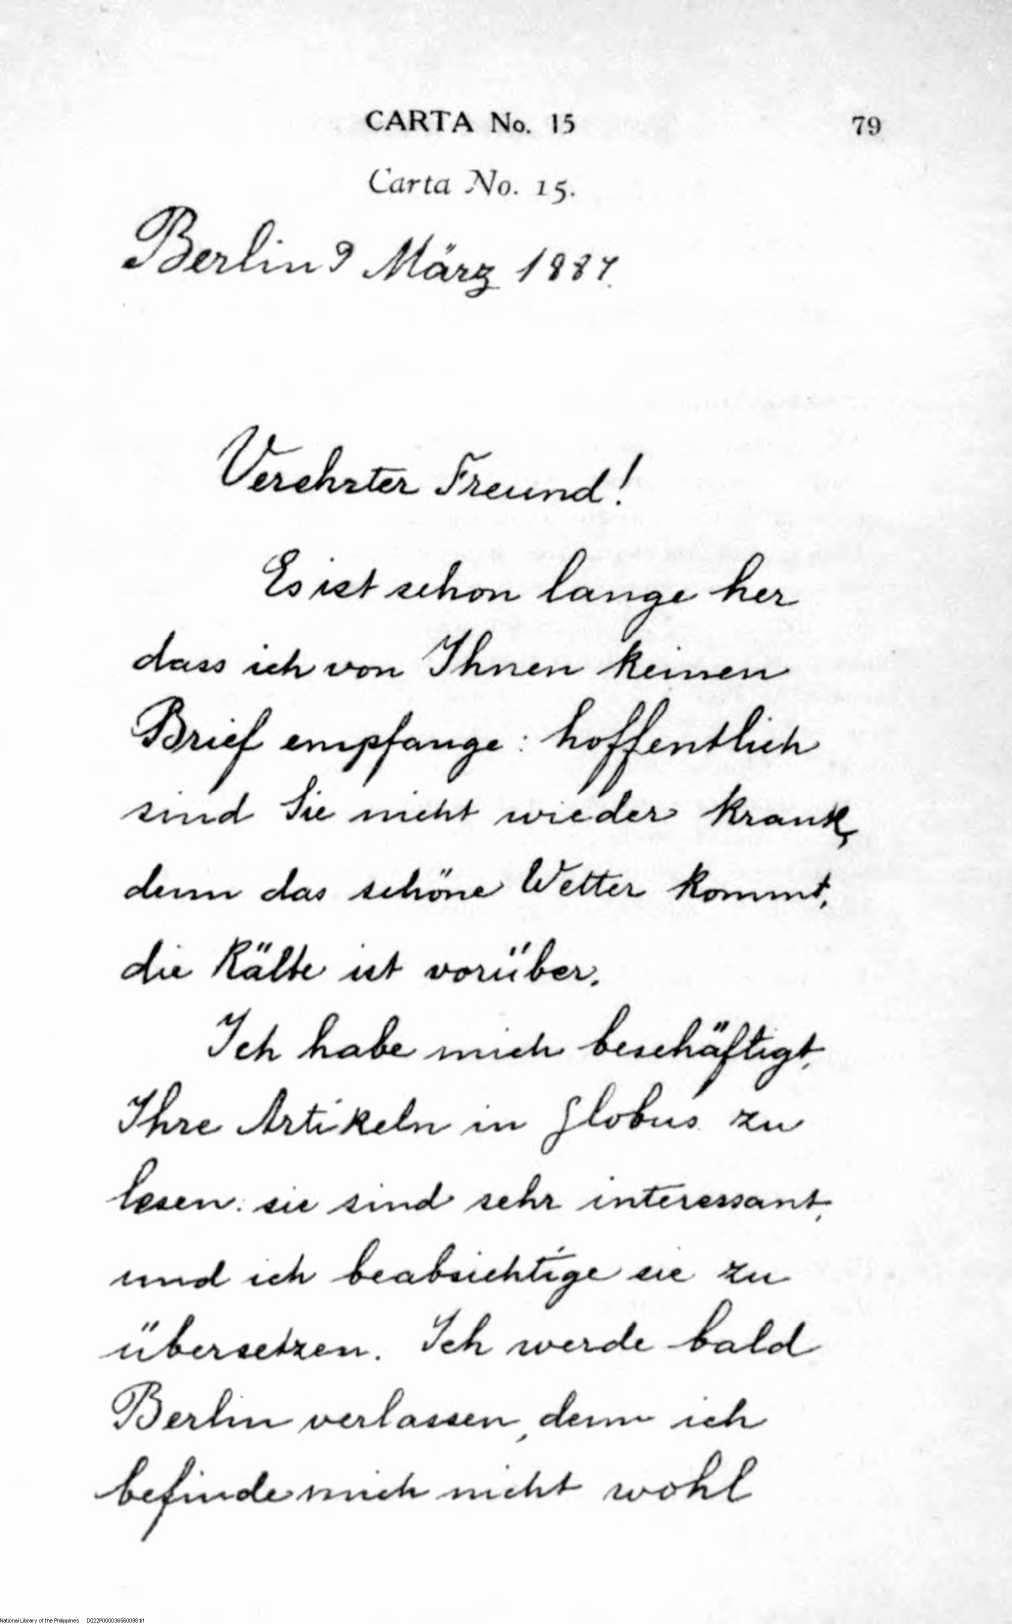 CARTA No. 15 79
Carta No. 15.
Berlin 9 März 1887.
Verehrter Freund!
Es ist schon lange her
dass ich von Ihnen keinen
Brief empfange: hoffentlich
sind Sie nicht wieder krank,
denn das schöne Wetter kommt,
die Kälte ist vorüber.
Ich habe mich beschäftigt,
Ihre Artikeln in Globus zu
lesen: sie sind sehr interessant,
und ich beabsichtige sie zu
übersetzen. Ich werde bald
Berlin verlassen, denn ich
befinde mich nicht wohl
National Library of the Philippines